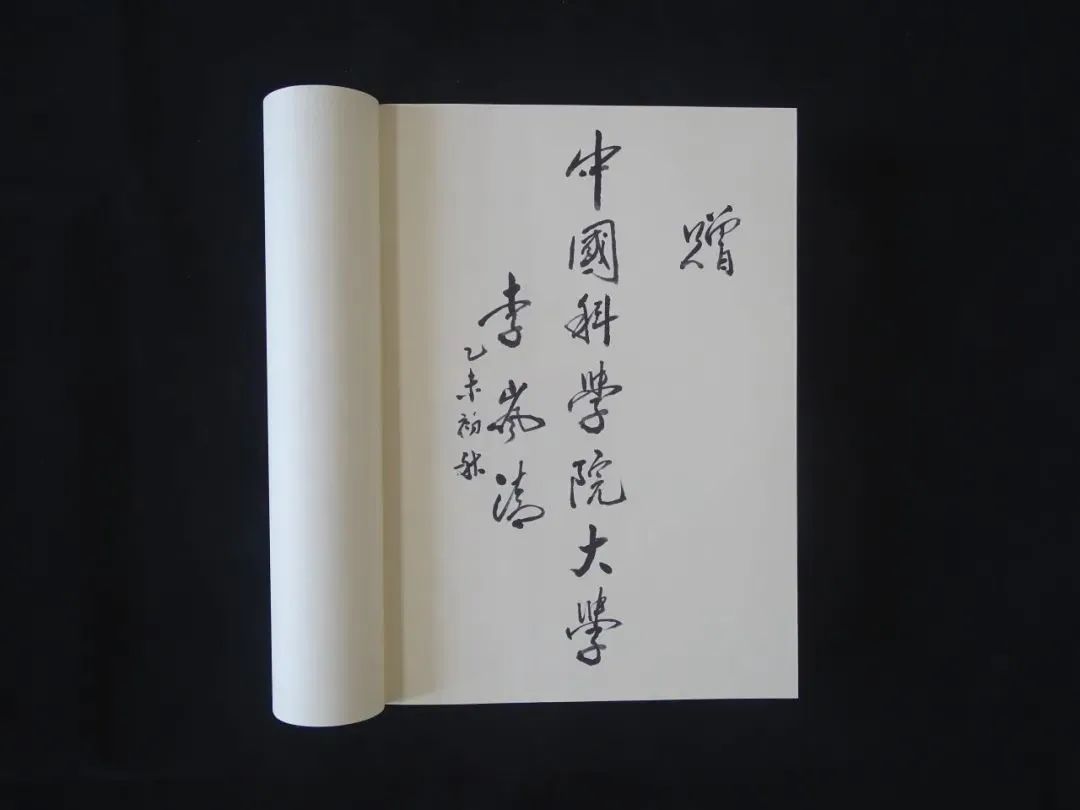 贈
中國科學院大學
李嵐清
乙未初秋